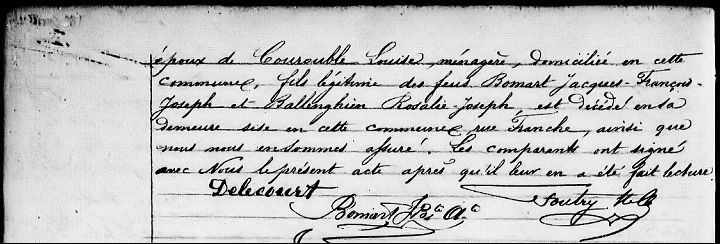 époux de Courouble Louise, ménagère, domiciliée en cette
commune, fils légitime des feus Bomart Jacques-François-
Joseph et Ballenghien Rosalie-Joseph, est décédé en sa
demeure sise en cette commune, rue Franche, ainsi que
nous nous en sommes assuré. Les comparants ont signé
avec Nous le présent acte après qu'il leur en a été fait lecture
Delecourt
Bomart Soutry